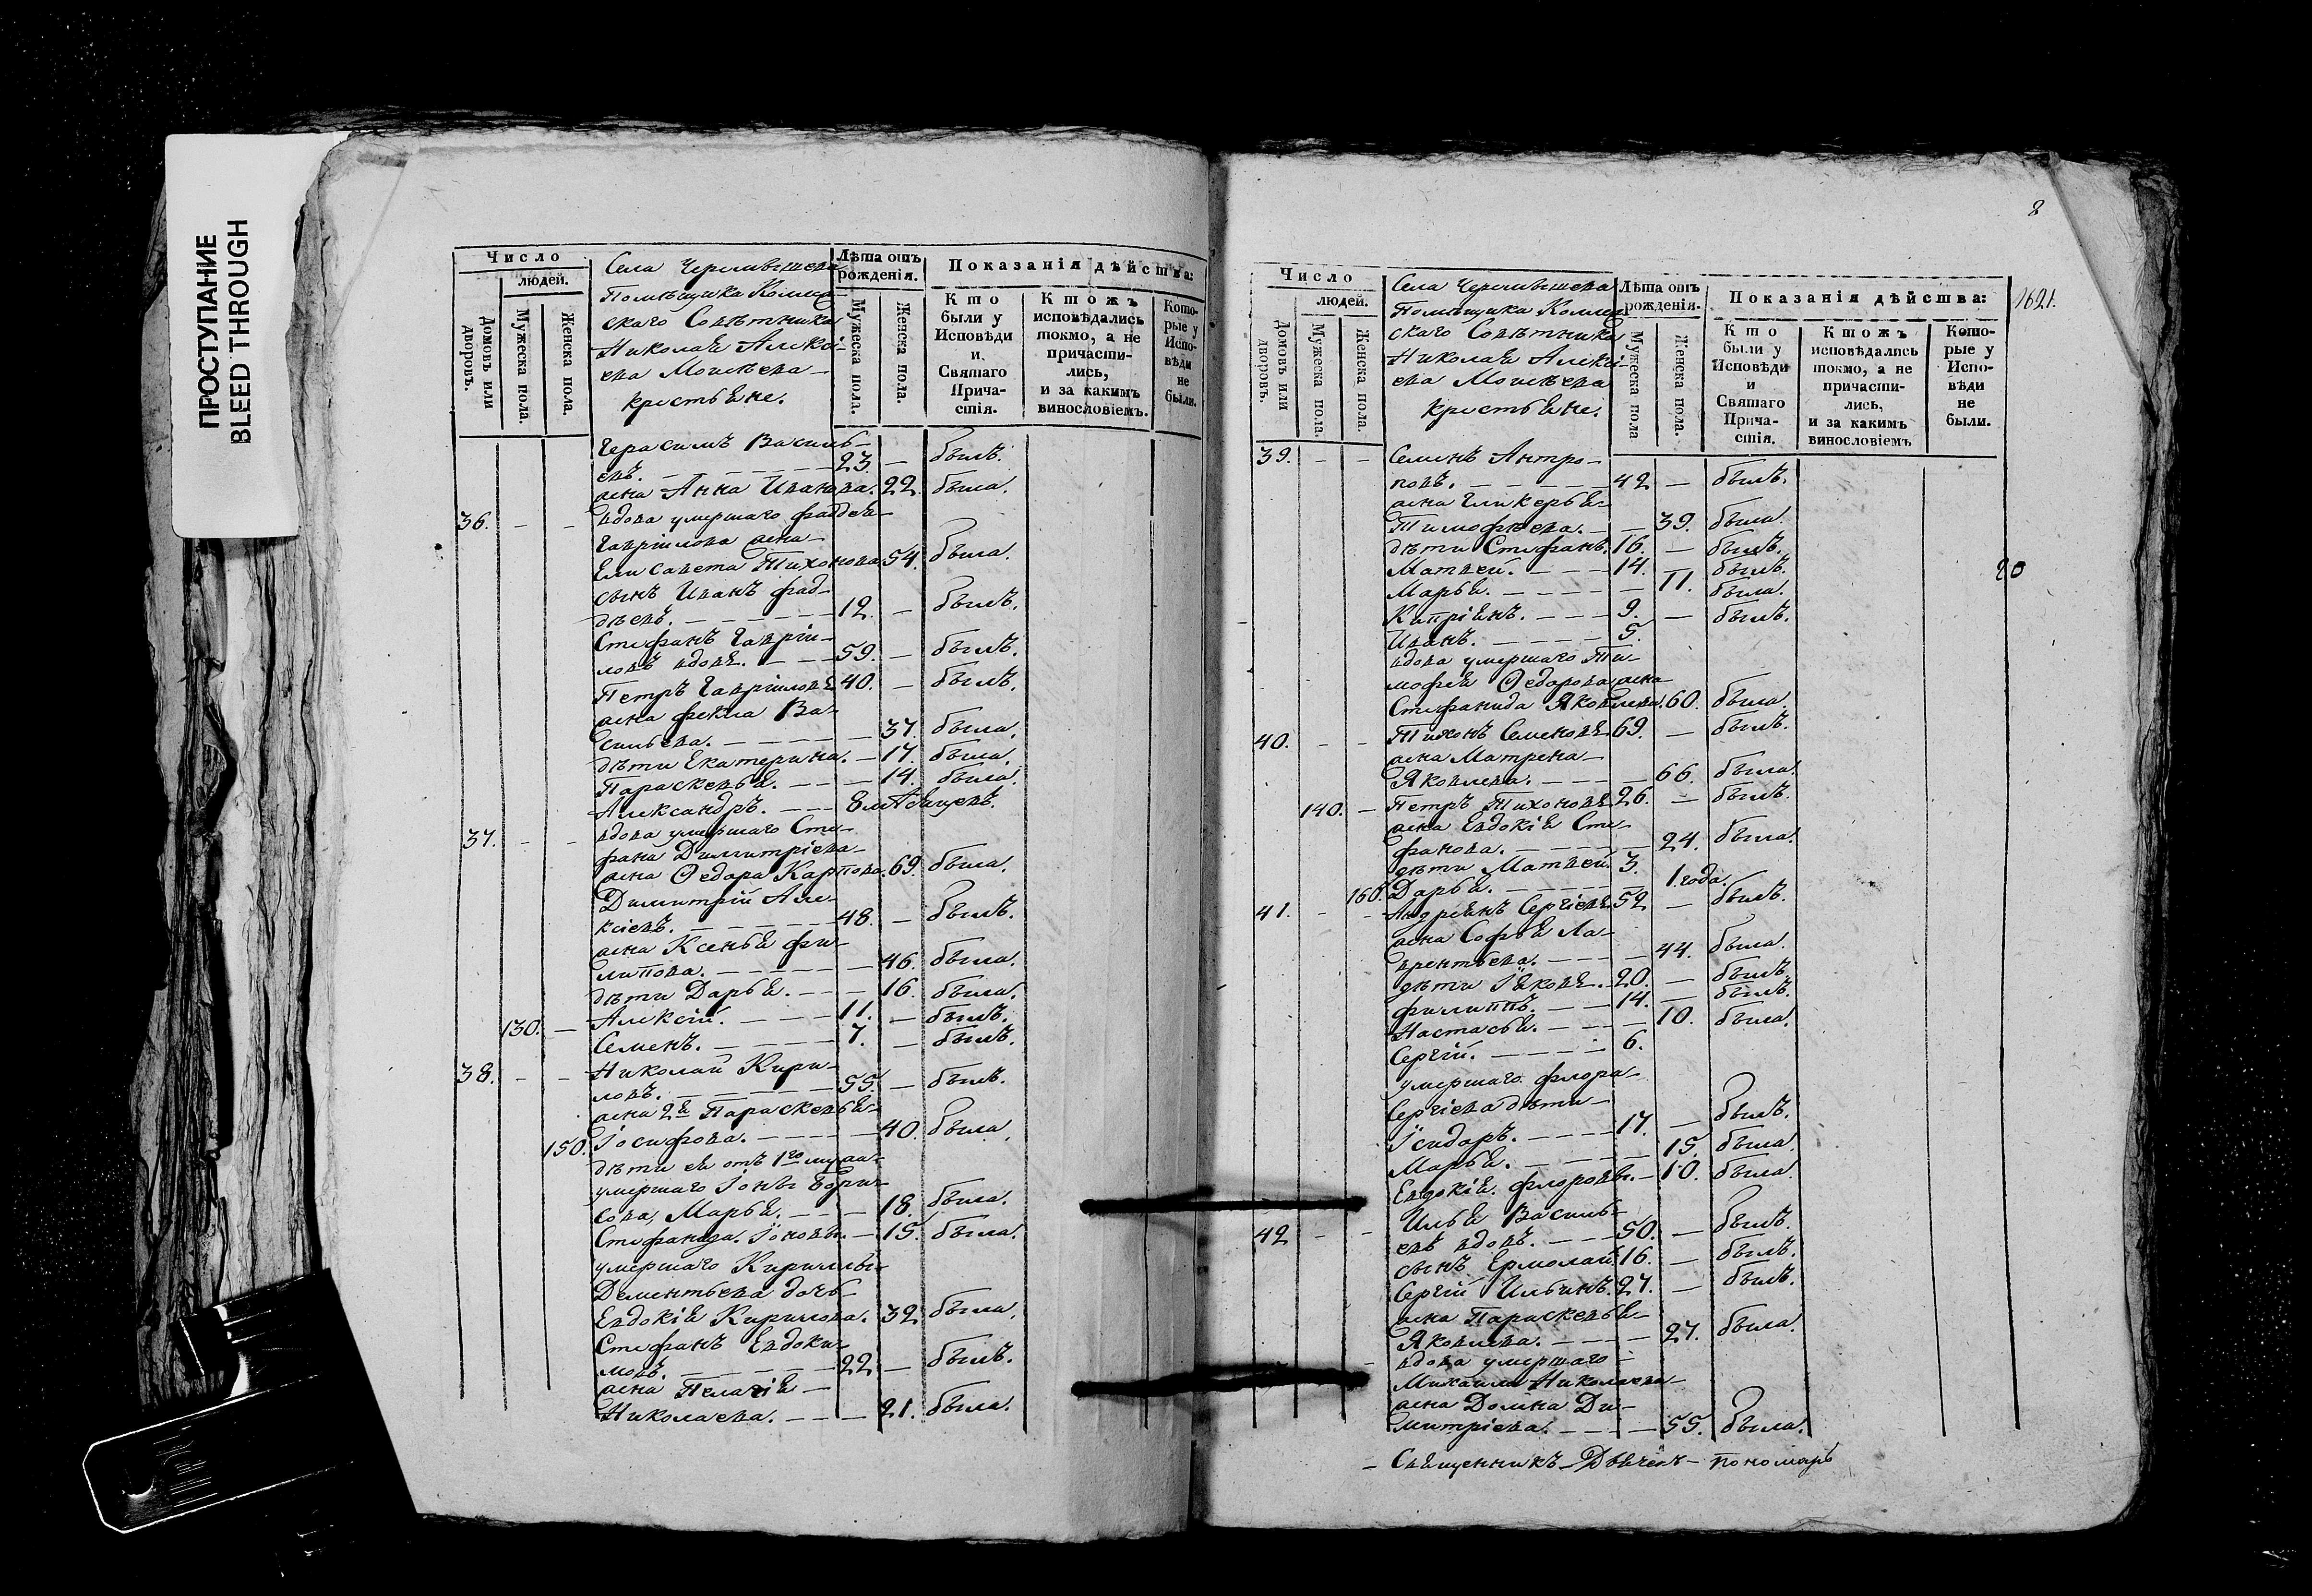 ПРОСТУПАНИЕ
BLEED THROUGH
Число
людей.
Домовъ или дворовъ.
Мужеска пола.
Женска пола.
Села Черемышева
Помѣщика Коллеж
скаго Совѣтника
Николая Алексі-
ева Моисеева
крестьяне.
Лѣта отъ рожденія.
Мужеска пола.
Женска пола.
Показанія дѣйства:
Кто были у Исповѣди и Святаго Причастія.
Ктожъ исповѣдались токмо, а не причастились, и за какимъ винословіемъ.
Которые у Исповѣди не были.
Герасимъ Василь-
евъ. 23 — былъ.
жена Анна Иванова. 22. была.
36. — — вдова умершаго Фаддея
Гавріилова жена
Елисавета Тихонова 54. была.
сынъ Иванъ Фад-
дѣевъ. 12. — былъ.
Стефанъ Гавріи-
ловъ вдовъ. 59. — былъ.
Петръ Гавріиловъ 40. — былъ.
жена Фекла Ва-
сильева. — 37. была.
дѣти Екатерина. — 17. была.
Параскевья. — 14. была.
Александръ. 8 лѣт
37. — — вдова умершаго Сте-
фана Димитріева
жена Ѳедора Карпова. 69. была.
Димитрій Але-
ксіевъ. 48. — былъ.
жена Ксенья Фи-
липова. — 46. была.
дѣти Дарья. — 16. была.
130. — Алексій. 11. — былъ.
Семенъ. 7. — былъ.
38. — — Николай Кири-
ловъ. 55. — былъ.
жена 2я Параскевья
150. Іосифова. — 40. была.
дѣти ея отъ 1го мужа
умершаго Іоны Бори-
сова, Марья. — 18. была.
Стефанида. Іоновы. — 15. была.
умершаго Кириллы
Дементьева дочь
Евдокія Кирилова. 32 была.
Стефанъ Евдоки-
мовъ. 22 — былъ.
жена Пелагія
Николаева. — 21. была.
8
1621.
Число
людей.
Домовъ или дворовъ.
Мужеска пола.
Женска пола.
Села Черемышева
Помѣщика Коллеж
скаго Совѣтника
Николая Алексі-
ева Моисеева
крестьяне.
Лѣта отъ рожденія.
Мужеска пола
Женска пола.
Показанія дѣйства:
Кто были у Исповѣди и Святаго Причастія.
Ктожъ исповѣдались токмо, а не причастились, и за какимъ винословіемъ
Которые у Исповѣди не были.
39. — — Семенъ Антро-
повъ. 42 — былъ.
жена Гликерья
Тимофѣева. — 39. была.
дѣти Стефанъ. 16. — былъ.
Матвей. 14. — былъ.
20
Марья. — 11. была.
Кипріянъ. 9. — былъ.
Иванъ. 5.
вдова умершаго Ти-
мофея Ѳедорова жена
Стефанида Яковлева. 60. была.
40. — — Тихонъ Семеновъ 69. — былъ.
жена Матрена
Яковлева. — 66. была.
140. — Петръ Тихоновъ 26. — былъ.
жена Евдокія Сте-
фанова. — 24. была.
дѣти Матвей. 3.
160. Дарья. 1. года.
41. — — Андреянъ Сергіевъ 52 — былъ.
жена Софья Ла-
врентьева. — 44. была.
дѣти Іяковъ. 20. — былъ.
Филиппъ. 14. — былъ.
Настасья. — 10. была.
Сергій. 6.
умершаго Флора
Сергіева дѣти
Ісидоръ. 17. — былъ.
Марья. — 15. была.
Евдокія. Флоровы. — 10. была.
42 — — Илья Василь-
евъ вдовъ. 50. — былъ.
сынъ Ермолай. 16. — былъ.
Сергій Ильинъ. 27. — былъ.
жена Параскевья
Яковлева. — 27. была.
вдова умершаго
Михаила Николаева
жена Домна Ди-
митріева. — 55. была.
— Священникъ — — пономарь